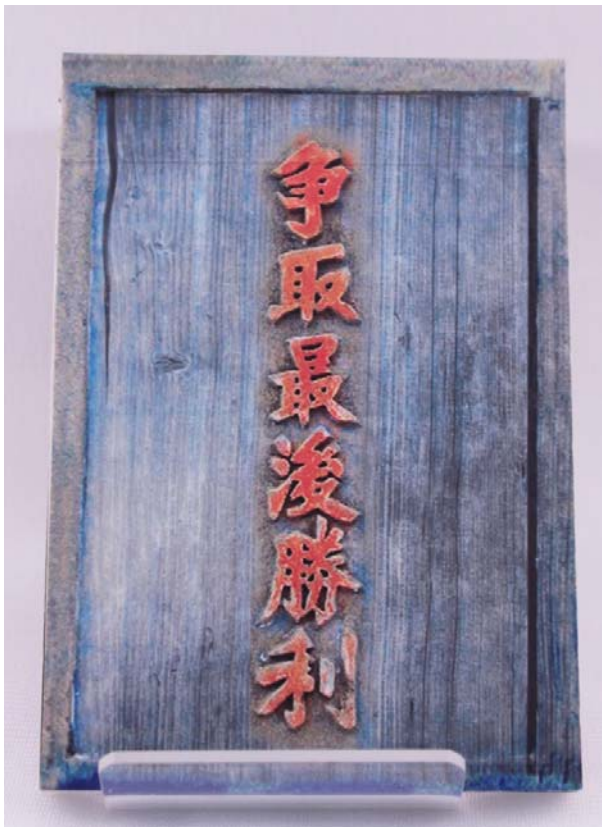 争取最後勝利